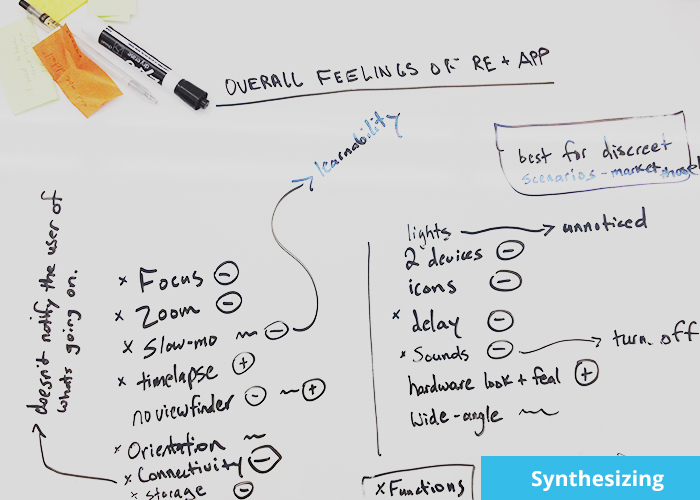 OVERALL FEELINGS OF RE + APP
learnability
best for discreet
scenarios - market those
doesn't notify the user of
whats going on.
x Focus -
x Zoom -
x Slow-mo ~ -
x timelapse +
no viewfinder - ~ +
x Orientation ~
x Connectivity -
x storage -
lights → unnoticed
2 devices -
icons -
x delay -
x Sounds - → turn off
hardware look + feel +
Wide-angle ~
x Functions
Synthesizing